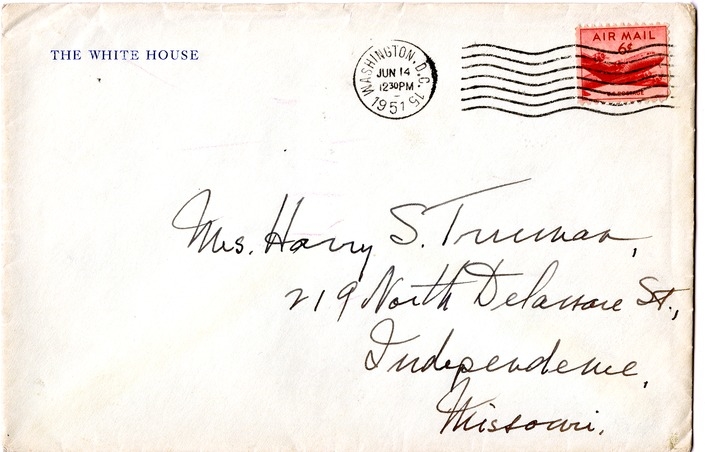 THE WHITE HOUSE
WASHINGTON, D.C. 15
JUN 14
12 30 PM
1951
AIR MAIL
6¢
U.S. POSTAGE
Mrs. Harry S. Truman,
219 North Delaware St.,
Independence,
Missouri.